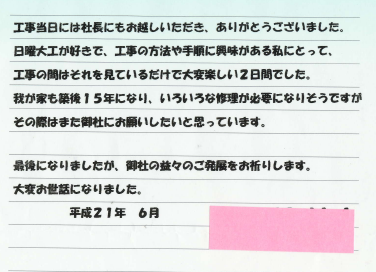 工事当日には社長にもお越しいただき、ありがとうございました。
日曜大工が好きで、工事の方法や手順に興味がある私にとって、
工事の間はそれを見ているだけで大変楽しい２日間でした。
我が家も築後１５年になり、いろいろな修理が必要になりそうですが
その際はまた御社にお願いしたいと思っています。
最後になりましたが、御社の益々のご発展をお祈りします。
大変お世話になりました。
平成２１年　６月